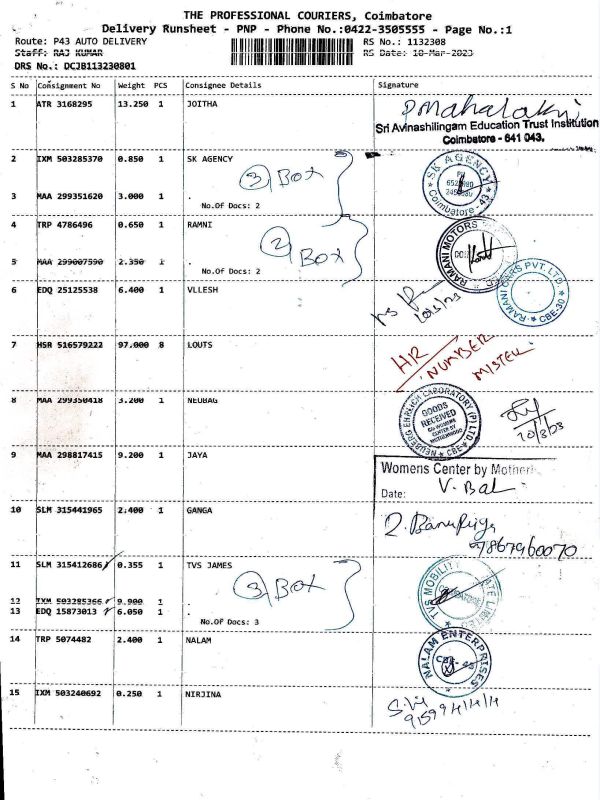 THE PROFESSIONAL COURIERS, Coimbatore
Delivery Runsheet - PNP - Phone No.:0422-3505555 - Page No.:1
Route: P43 AUTO DELIVERY RS No.: 1132308
Staff: RAJ KUMAR RS Date: 10-Mar-2023
DRS No.: DCJB113230801
S No Consignment No Weight PCS Consignee Details Signature
1 ATR 3168295 13.250 1 JOITHA
Sri Avinashilingam Education Trust Institution
Coimbatore - 641 043.
2 IXM 503285370 0.850 1 SK AGENCY
3 Box
SK AGENCY
Coimbatore - 43
3 MAA 299351620 3.000 1 .
No.Of Docs: 2
4 TRP 4786496 0.650 1 RAMNI
2 Box
RAMANI MOTORS
5 MAA 299007590 2.350 1 .
No.Of Docs: 2
RAMANI CARS PVT. LTD.
CBE-30
6 EDQ 25125538 6.400 1 VLLESH
7 HSR 516579222 97.000 8 LOUTS
HR
NUMBER
8 MAA 299350418 3.200 1 NEUBAG
NEUBERG EHRLICH LABORATORY (P) LTD
GOODS
RECEIVED
CBE
9 MAA 298817415 9.200 1 JAYA
Womens Center by Mother
Date: V. Bal
10 SLM 315441965 2.400 1 GANGA
9786796 0070
11 SLM 315412686 0.355 1 TVS JAMES
3 Box
TVS MOBILITY PRIVATE LIMITED
12 IXM 503285366 9.900 1 .
13 EDQ 15873013 6.050 1 .
No.Of Docs: 3
14 TRP 5074482 2.400 1 NALAM
NALAM ENTERPRISES
15 IXM 503240692 0.250 1 NIRJINA